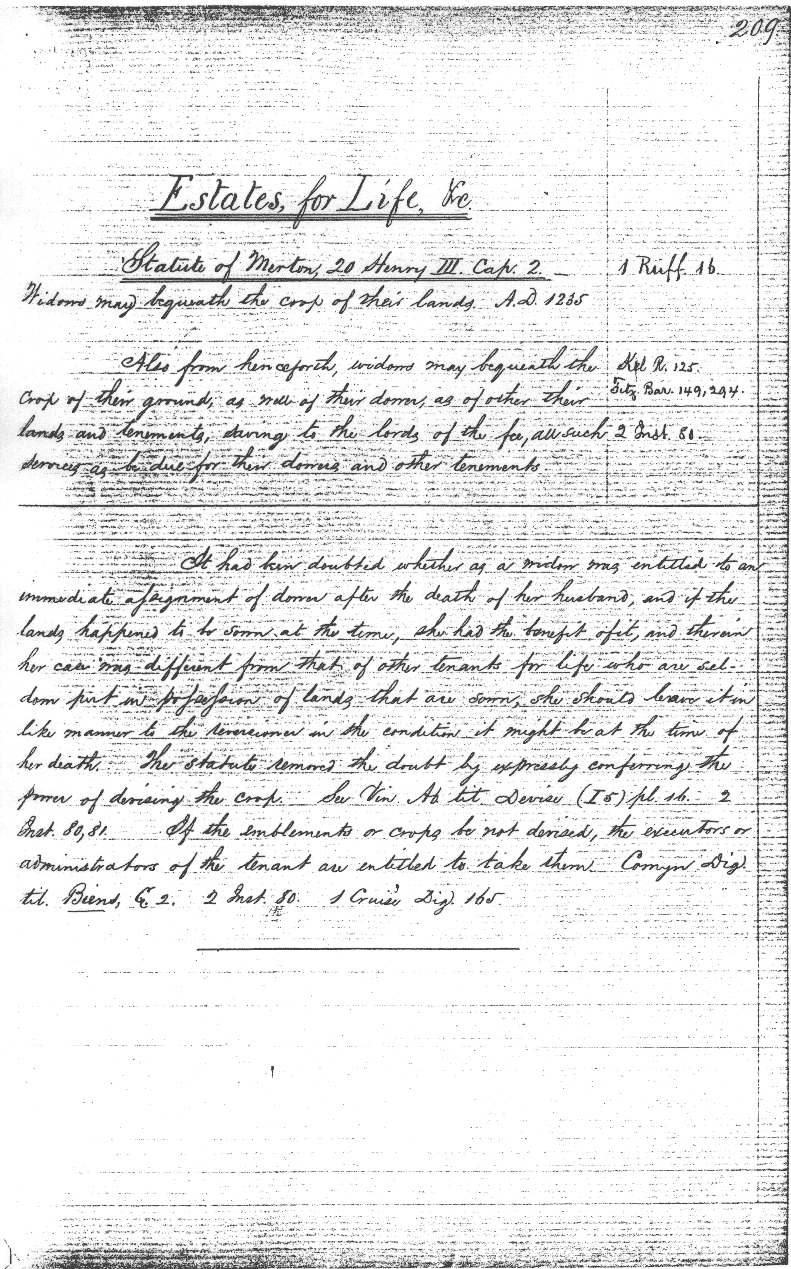 209
Estates, for Life, &c.
Statute of Merton, 20 Henry III. Cap. 2. 1 Ruff. 16.
Widows may bequeath the crop of their lands. A.D. 1235
Also from henceforth, widows may bequeath the Kel R. 125.
Fitz. Bar. 149, 294.
crop of their ground, as well of their dower, as of other their
lands and tenements, saving to the lords of the fee, all such 2 Inst. 80
services as be due for their dowers and other tenements
It had been doubted whether as a widow was entitled to an
immediate assignment of dower after the death of her husband, and if the
lands happened to be sown at the time, she had the benefit of it, and therein
her case was different from that of other tenants for life who are sel-
dom put in possession of lands that are sown, she should leave it in
like manner to the reversioner in the condition it might be at the time of
her death. The statute removed the doubt by expressly conferring the
power of devising the crop. See Vin. Ab. tit. Devise (I 5) pl. 16. 2
Inst. 80, 81. If the emblements or crops be not devised, the executors or
administrators of the tenant are entitled to take them. Comyn Dig.
tit. Biens, G 2. 2 Inst. 80. 1 Cruise's Dig. 165.